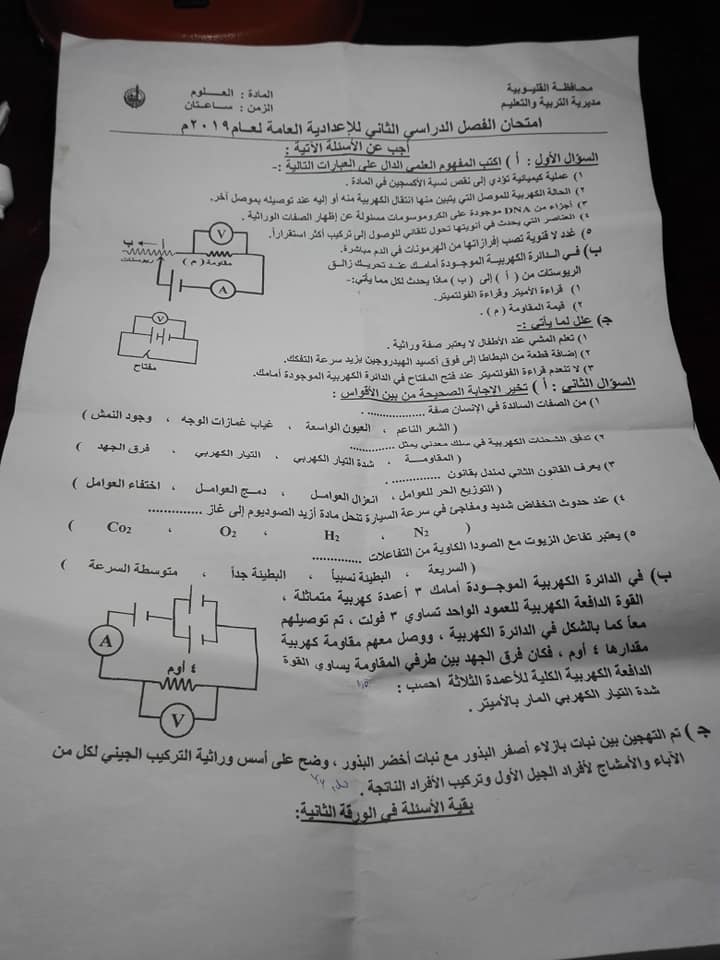 محافظة القليوبية
مديرية التربية والتعليم
المادة : العلوم
الزمن : ساعتان
امتحان الفصل الدراسي الثاني للإعدادية العامة لعام ٢٠١٩م
أجب عن الأسئلة الآتية :
السؤال الأول : أ ) اكتب المفهوم العلمي الدال على العبارات التالية :-
١) عملية كيميائية تؤدي إلى نقص نسبة الأكسجين في المادة .
٢) الحالة الكهربية للموصل التي يتبين منها انتقال الكهربية منه أو إليه عند توصيله بموصل آخر.
٣) أجزاء من DNA موجودة على الكروموسومات مسئولة عن إظهار الصفات الوراثية .
٤) العناصر التي يحدث في أنويتها تحول تلقائي للوصول إلى تركيب أكثر استقراراً.
٥) غدد لا قنوية تصب إفرازاتها من الهرمونات في الدم مباشرة.
ب) في الدائرة الكهربية الموجودة أمامك عند تحريك زالق
الريوستات من ( أ ) إلى ( ب ) ماذا يحدث لكل مما يأتي:-
١) قراءة الأميتر وقراءة الفولتميتر.
٢) قيمة المقاومة ( م ) .
V
مقاومة ( م )
ب
أ
ريوستات
A
ج) علل لما يأتي :-
١) تعلم المشي عند الأطفال لا يعتبر صفة وراثية .
٢) إضافة قطعة من البطاطا إلى فوق أكسيد الهيدروجين يزيد سرعة التفكك.
٣) لا تنعدم قراءة الفولتميتر عند فتح المفتاح في الدائرة الكهربية الموجودة أمامك.
V
مفتاح
السؤال الثاني : أ ) تخير الإجابة الصحيحة من بين الأقواس :
١) من الصفات السائدة في الإنسان صفة .................
( الشعر الناعم ، العيون الواسعة ، غياب غمازات الوجه ، وجود النمش )
٢) تدفق الشحنات الكهربية في سلك معدني يمثل ..............
( المقاومة ، شدة التيار الكهربي ، التيار الكهربي ، فرق الجهد )
٣) يعرف القانون الثاني لمندل بقانون ..............
( التوزيع الحر للعوامل ، انعزال العوامل ، دمج العوامل ، اختفاء العوامل )
٤) عند حدوث انخفاض شديد ومفاجئ في سرعة السيارة تنحل مادة أزيد الصوديوم إلى غاز ..............
( N2 ، H2 ، O2 ، Co2 )
٥) يعتبر تفاعل الزيوت مع الصودا الكاوية من التفاعلات ..............
( السريعة ، البطيئة نسبياً ، البطيئة جداً ، متوسطة السرعة )
ب) في الدائرة الكهربية الموجودة أمامك ٣ أعمدة كهربية متماثلة ،
القوة الدافعة الكهربية للعمود الواحد تساوي ٣ فولت ، تم توصيلهم
معاً كما بالشكل في الدائرة الكهربية ، ووصل معهم مقاومة كهربية
مقدارها ٤ أوم ، فكان فرق الجهد بين طرفي المقاومة يساوي القوة
الدافعة الكهربية الكلية للأعمدة الثلاثة احسب :
شدة التيار الكهربي المار بالأميتر .
A
٤ أوم
V
ج ) تم التهجين بين نبات بازلاء أصفر البذور مع نبات أخضر البذور ، وضح على أسس وراثية التركيب الجيني لكل من
الآباء والأمشاج لأفراد الجيل الأول وتركيب الأفراد الناتجة .
بقية الأسئلة في الورقة الثانية: